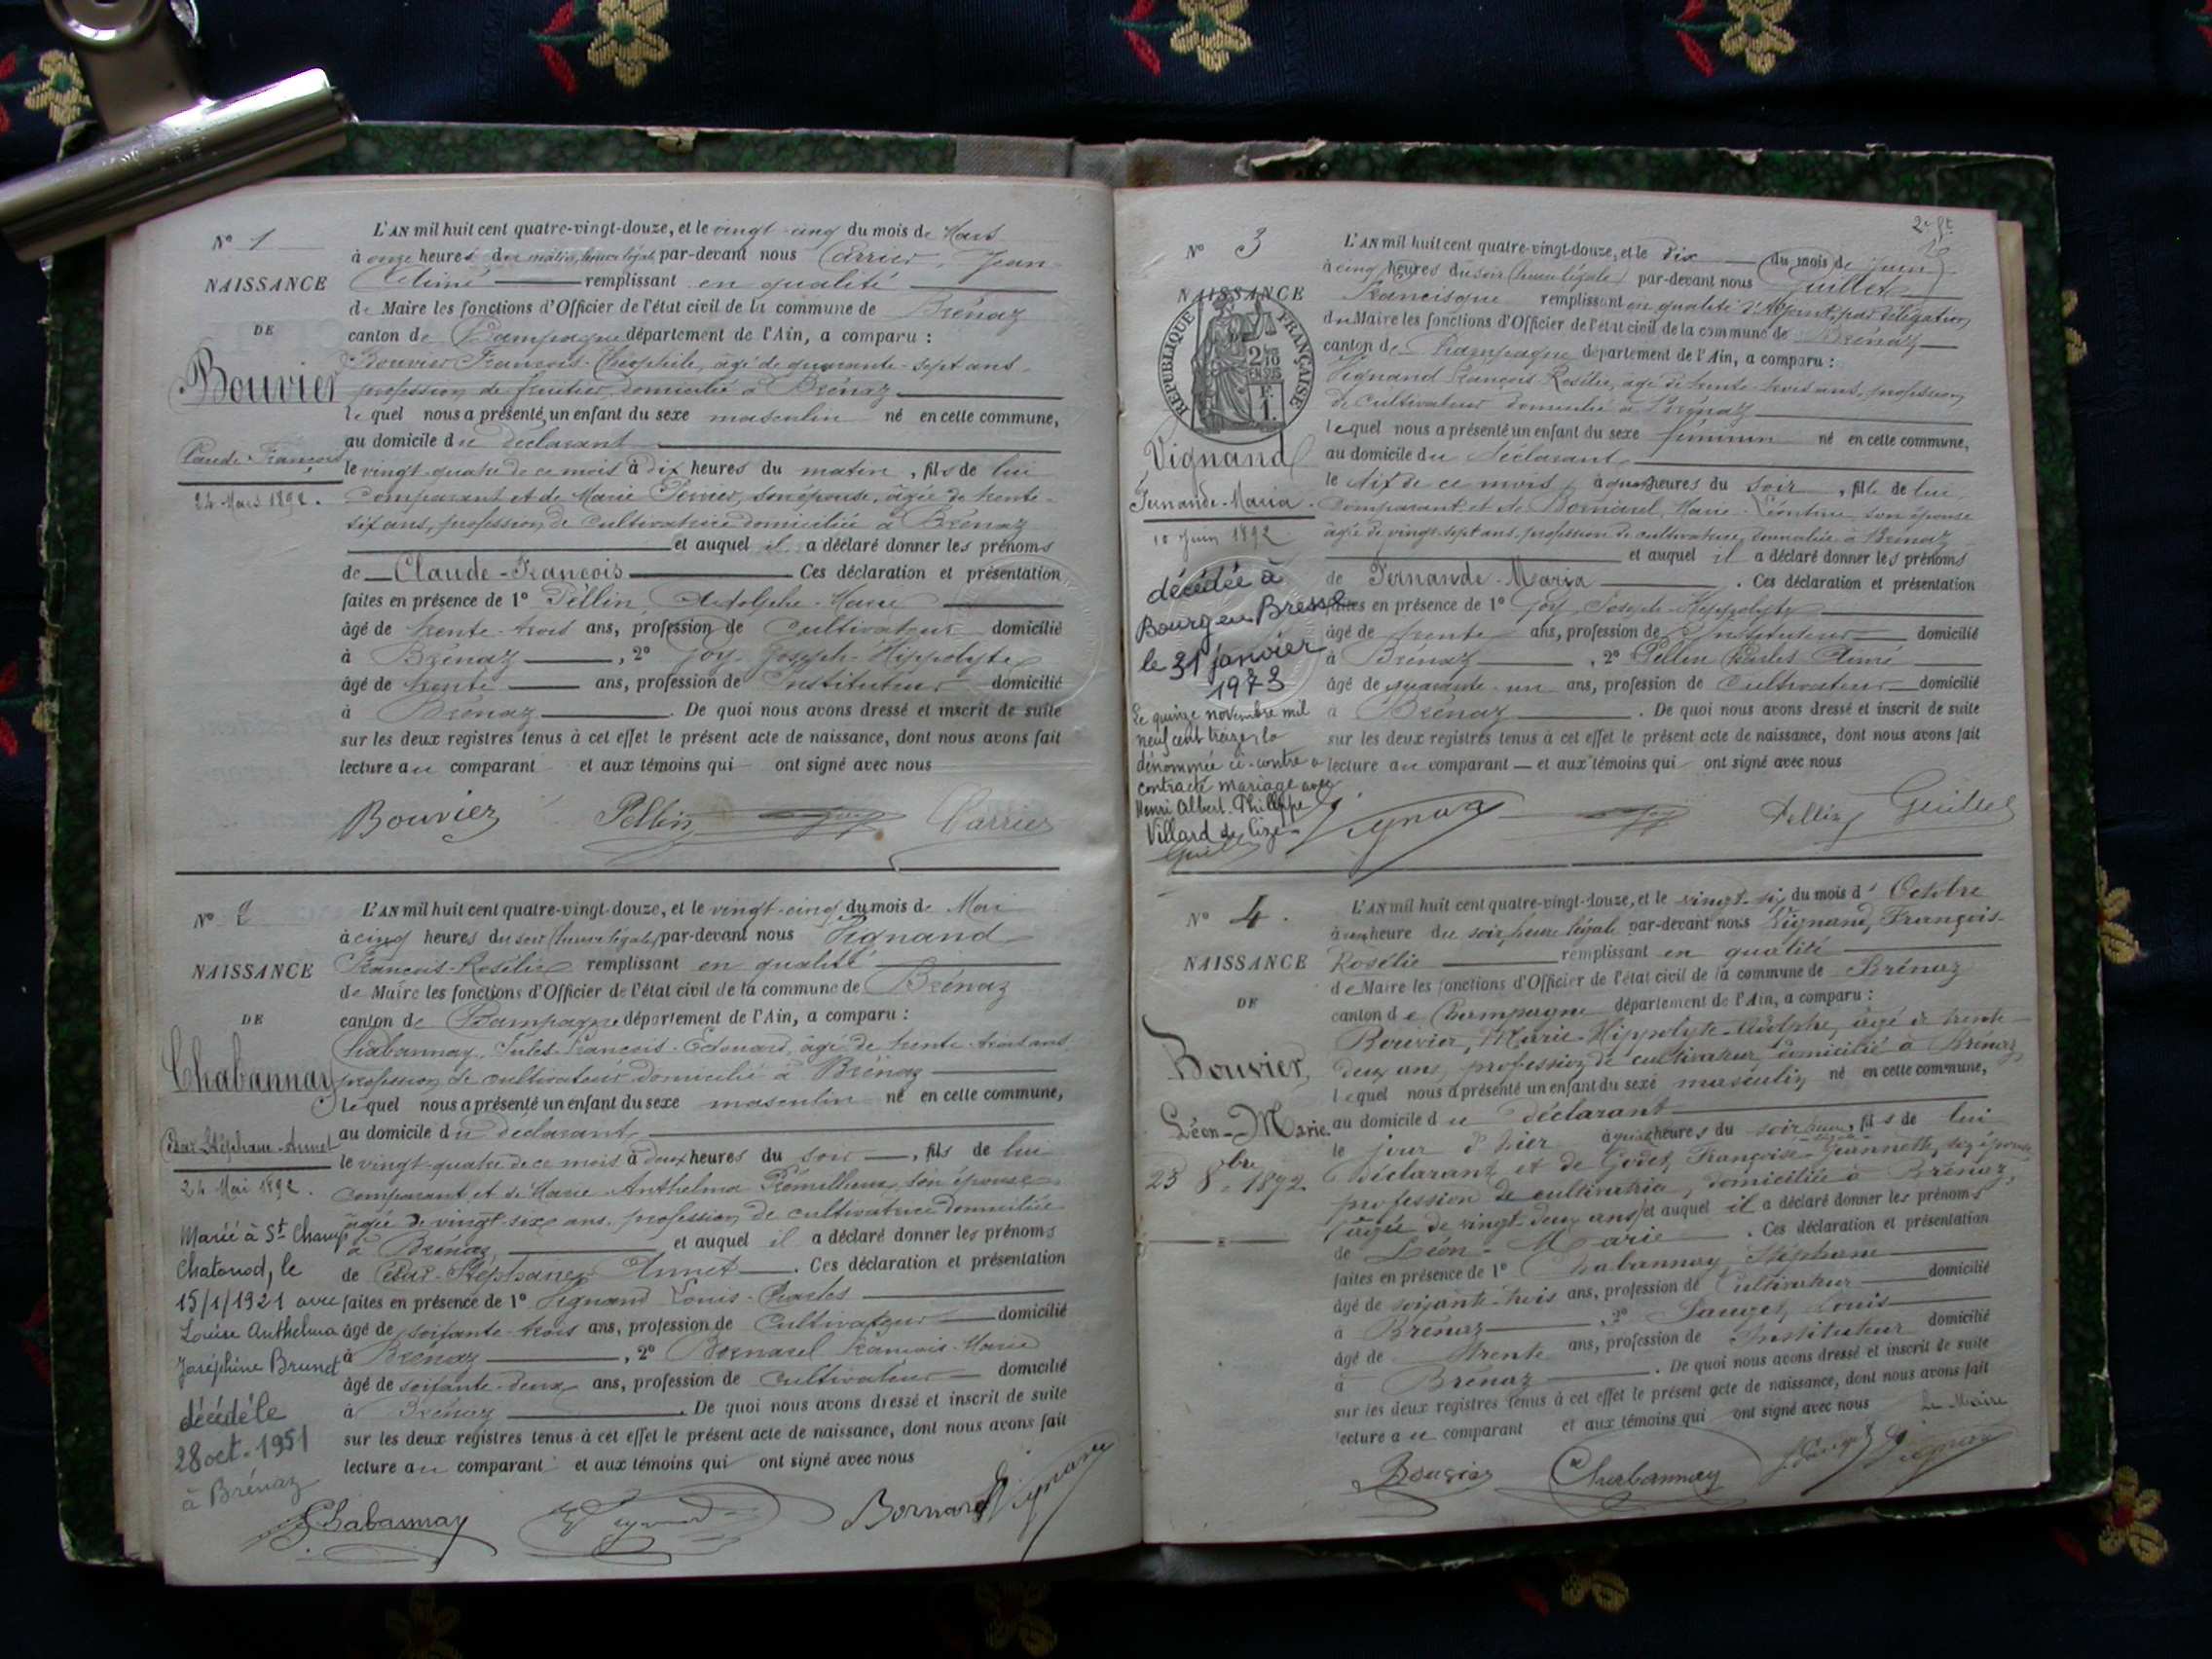 N° 1
NAISSANCE
DE
Bouvier
Claude-François
24 Mars 1892.
L'AN mil huit cent quatre-vingt-douze, et le vingt-cinq du mois de Mars
à onze heures du matin, heure légale, par-devant nous Carrier, Jean-
Aimé remplissant en qualité
de Maire les fonctions d'Officier de l'état civil de la commune de Brénaz
canton de Champagne département de l'Ain, a comparu :
Bouvier François-Théophile, âgé de quarante-sept ans,
profession de fruitier, domicilié à Brénaz
lequel nous a présenté un enfant du sexe masculin né en cette commune,
au domicile du déclarant
le vingt-quatre de ce mois à dix heures du matin, fils de lui
comparant et de Marie Perrier, son épouse, âgée de trente-
six ans, profession de cultivatrice domiciliée à Brénaz
et auquel il a déclaré donner les prénoms
de Claude-François Ces déclaration et présentation
faites en présence de 1° Pellin, Adolphe-Marie
âgé de trente-trois ans, profession de Cultivateur domicilié
à Brénaz, 2° Joy, Joseph-Hippolyte
âgé de trente ans, profession de Instituteur domicilié
à Brénaz. De quoi nous avons dressé et inscrit de suite
sur les deux registres tenus à cet effet le présent acte de naissance, dont nous avons fait
lecture au comparant et aux témoins qui ont signé avec nous
Bouvier Pellin Joy Carrier
N° 2
NAISSANCE
DE
Chabannay
César-Stéphane-Annet
24 Mai 1892.
Marié à St Champ
Chatonod, le
15/1/1921 avec
Louise Anthelma
Joséphine Brunet
décédé le
28 oct. 1951
à Brénaz
L'AN mil huit cent quatre-vingt-douze, et le vingt-cinq du mois de Mai
à cinq heures du soir (heure légale) par-devant nous Vignand
François-Rosélie remplissant en qualité
de Maire les fonctions d'Officier de l'état civil de la commune de Brénaz
canton de Champagne département de l'Ain, a comparu :
Chabannay, Jules-François-Edouard, âgé de trente-trois ans
profession de cultivateur domicilié à Brénaz
lequel nous a présenté un enfant du sexe masculin né en cette commune,
au domicile du déclarant
le vingt-quatre de ce mois à deux heures du soir, fils de lui
comparant et de Marie Anthelma son épouse
âgée de vingt-six ans, profession de cultivatrice domiciliée
à Brénaz et auquel il a déclaré donner les prénoms
de César-Stéphane-Annet. Ces déclaration et présentation
faites en présence de 1° Vignand Louis-Charles
âgé de soixante-trois ans, profession de Cultivateur domicilié
à Brénaz, 2° Bornarel François-Marie
âgé de soixante-deux ans, profession de Cultivateur domicilié
à Brénaz. De quoi nous avons dressé et inscrit de suite
sur les deux registres tenus à cet effet le présent acte de naissance, dont nous avons fait
lecture au comparant et aux témoins qui ont signé avec nous
Chabannay Vignand Bornarel Vignand
N° 3
NAISSANCE
DE
RÉPUBLIQUE FRANÇAISE
Vignand
Fernande-Maria.
10 Juin 1892
décédée à
Bourg en Bresse
le 31 janvier
1973
Le quinze novembre mil
neuf cent treize, la
dénommée ci-contre a
contracté mariage avec
Henri Albert Philippe
Villard de Lize
L'AN mil huit cent quatre-vingt-douze, et le dix du mois de Juin
à cinq heures du soir (heure légale) par-devant nous Guillet
Francisque remplissant en qualité d'Adjoint, par délégation
du Maire les fonctions d'Officier de l'état civil de la commune de Brénaz
canton de Champagne département de l'Ain, a comparu :
Vignand François Rosélie, âgé de trente-trois ans, profession
de Cultivateur domicilié à Brénaz
lequel nous a présenté un enfant du sexe féminin né en cette commune,
au domicile du déclarant
le dix de ce mois, à quatre heures du soir, fille de lui
comparant et de Bornarel, Marie-Léontine son épouse
âgée de vingt-sept ans, profession de cultivatrice, domiciliée à Brénaz
et auquel il a déclaré donner les prénoms
de Fernande-Maria. Ces déclaration et présentation
faites en présence de 1° Joy, Joseph-Hippolyte
âgé de trente ans, profession de Instituteur domicilié
à Brénaz, 2° Pellin Charles Aimé
âgé de quarante-un ans, profession de Cultivateur domicilié
à Brénaz. De quoi nous avons dressé et inscrit de suite
sur les deux registres tenus à cet effet le présent acte de naissance, dont nous avons fait
lecture au comparant et aux témoins qui ont signé avec nous
Vignand Joy Pellin Guillet
N° 4.
NAISSANCE
DE
Bouvier,
Léon-Marie.
25 8bre 1892
L'AN mil huit cent quatre-vingt-douze, et le vingt-six du mois d'Octobre
à une heure du soir, heure légale par-devant nous Vignand, François-
Rosélie remplissant en qualité
de Maire les fonctions d'Officier de l'état civil de la commune de Brénaz
canton de Champagne département de l'Ain, a comparu :
Bouvier, Marie-Hippolyte-Adolphe, âgé de trente-
deux ans, profession de cultivateur, domicilié à Brénaz,
lequel nous a présenté un enfant du sexe masculin né en cette commune,
au domicile du déclarant
le jour d'hier à heures du soir, fils de lui
déclarant et de Françoise-Jeannette, son épouse,
profession de cultivatrice, domiciliée à Brénaz,
âgée de vingt-deux ans, et auquel il a déclaré donner les prénoms
de Léon-Marie. Ces déclaration et présentation
faites en présence de 1° Chabannay, Stéphane
âgé de soixante-trois ans, profession de Cultivateur domicilié
à Brénaz, 2° Louis
âgé de trente ans, profession de Instituteur domicilié
à Brénaz. De quoi nous avons dressé et inscrit de suite
sur les deux registres tenus à cet effet le présent acte de naissance, dont nous avons fait
lecture au comparant et aux témoins qui ont signé avec nous Le Maire
Bouvier Chabannay Vignand